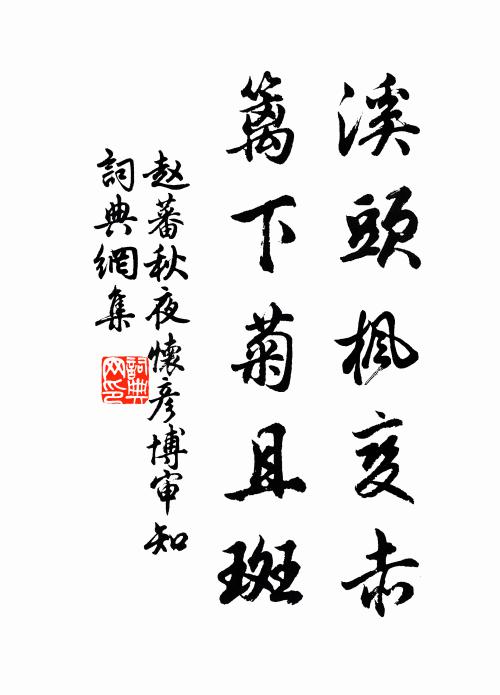 溪頭楓变赤
篱下菊且斑
赵蕃秋夜懷彦博审知
詞典網集
詞典网印